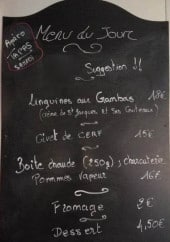 Apéro
TAPAS
Menu du Jour
Suggestion !!
Linguines aux Gambas 18€
(crème de St Jacques et Ses Couteaux)
Civet de CERF 15€
Boîte chaude (250g) ; charcuterie
Pommes Vapeur 16€
Fromage 9€
Dessert 4,50€